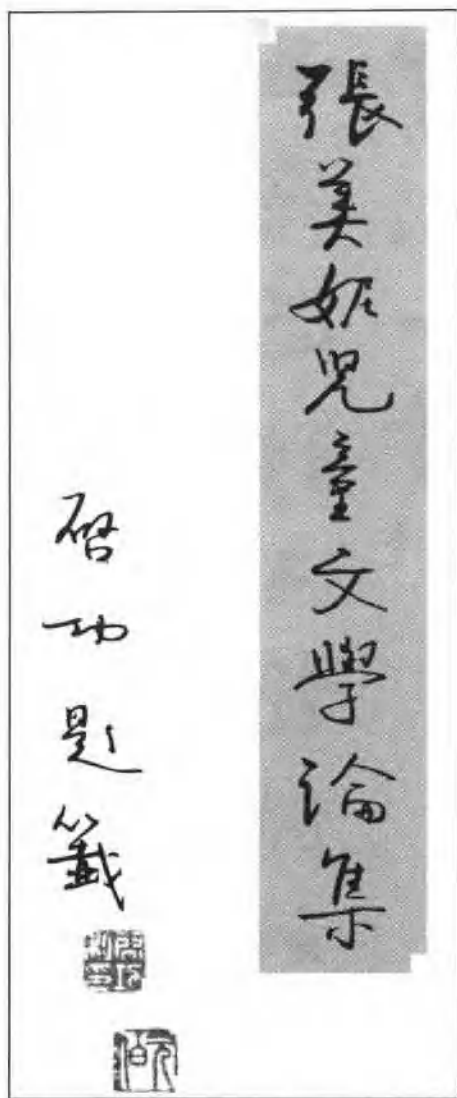 張美妮兒童文學論集
啓功題籤